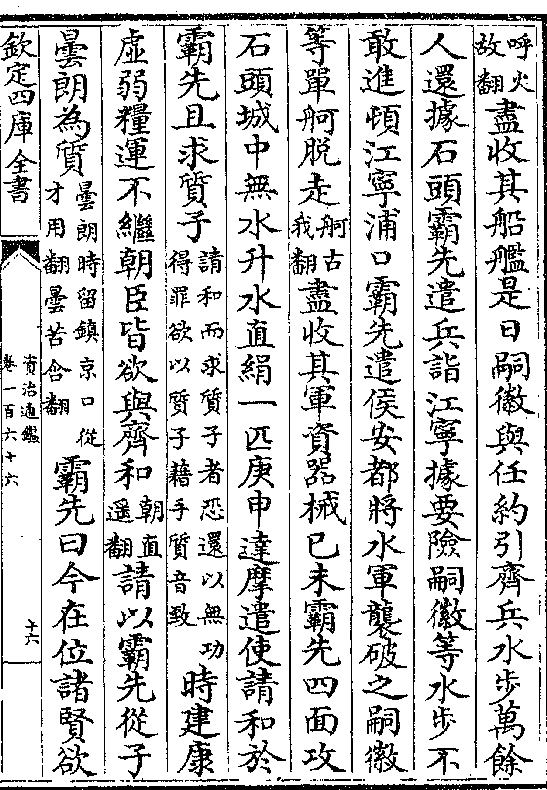 呼火
故翻
盡收其船艦是日嗣徽與任約引齊兵水步萬餘
人還據石頭霸先遣兵詣江寧據要險嗣徽等水步不
敢進頓江寧浦口霸先遣侯安都將水軍襲破之嗣徽
等單舸脫走
舸古
我翻
盡收其軍資器械已未霸先四面攻
石頭城中無水升水直絹一匹庚申達摩遣使請和於
霸先且求質子
請和而求質子者恐還以無功
得罪欲以質子藉手質音致
時建康
虛弱糧運不繼朝臣皆欲與齊和
朝直
遥翻
請以霸先從子
曇朗為質
曇朗時留鎮京口從
才用翻曇苦含翻
霸先曰今在位諸賢欲
欽定四庫全書
資治通鑑
卷一百六十六
十六